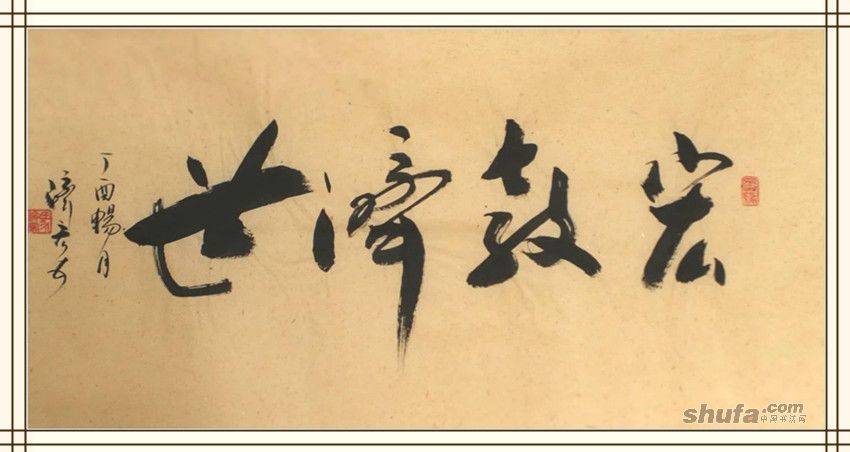 宏教濟世
丁酉暢月
濟
shufa.com
中国书法网